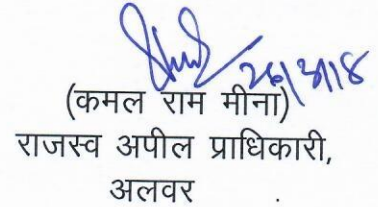 26/3/18
(कमल राम मीना)
राजस्व अपील प्राधिकारी,
अलवर